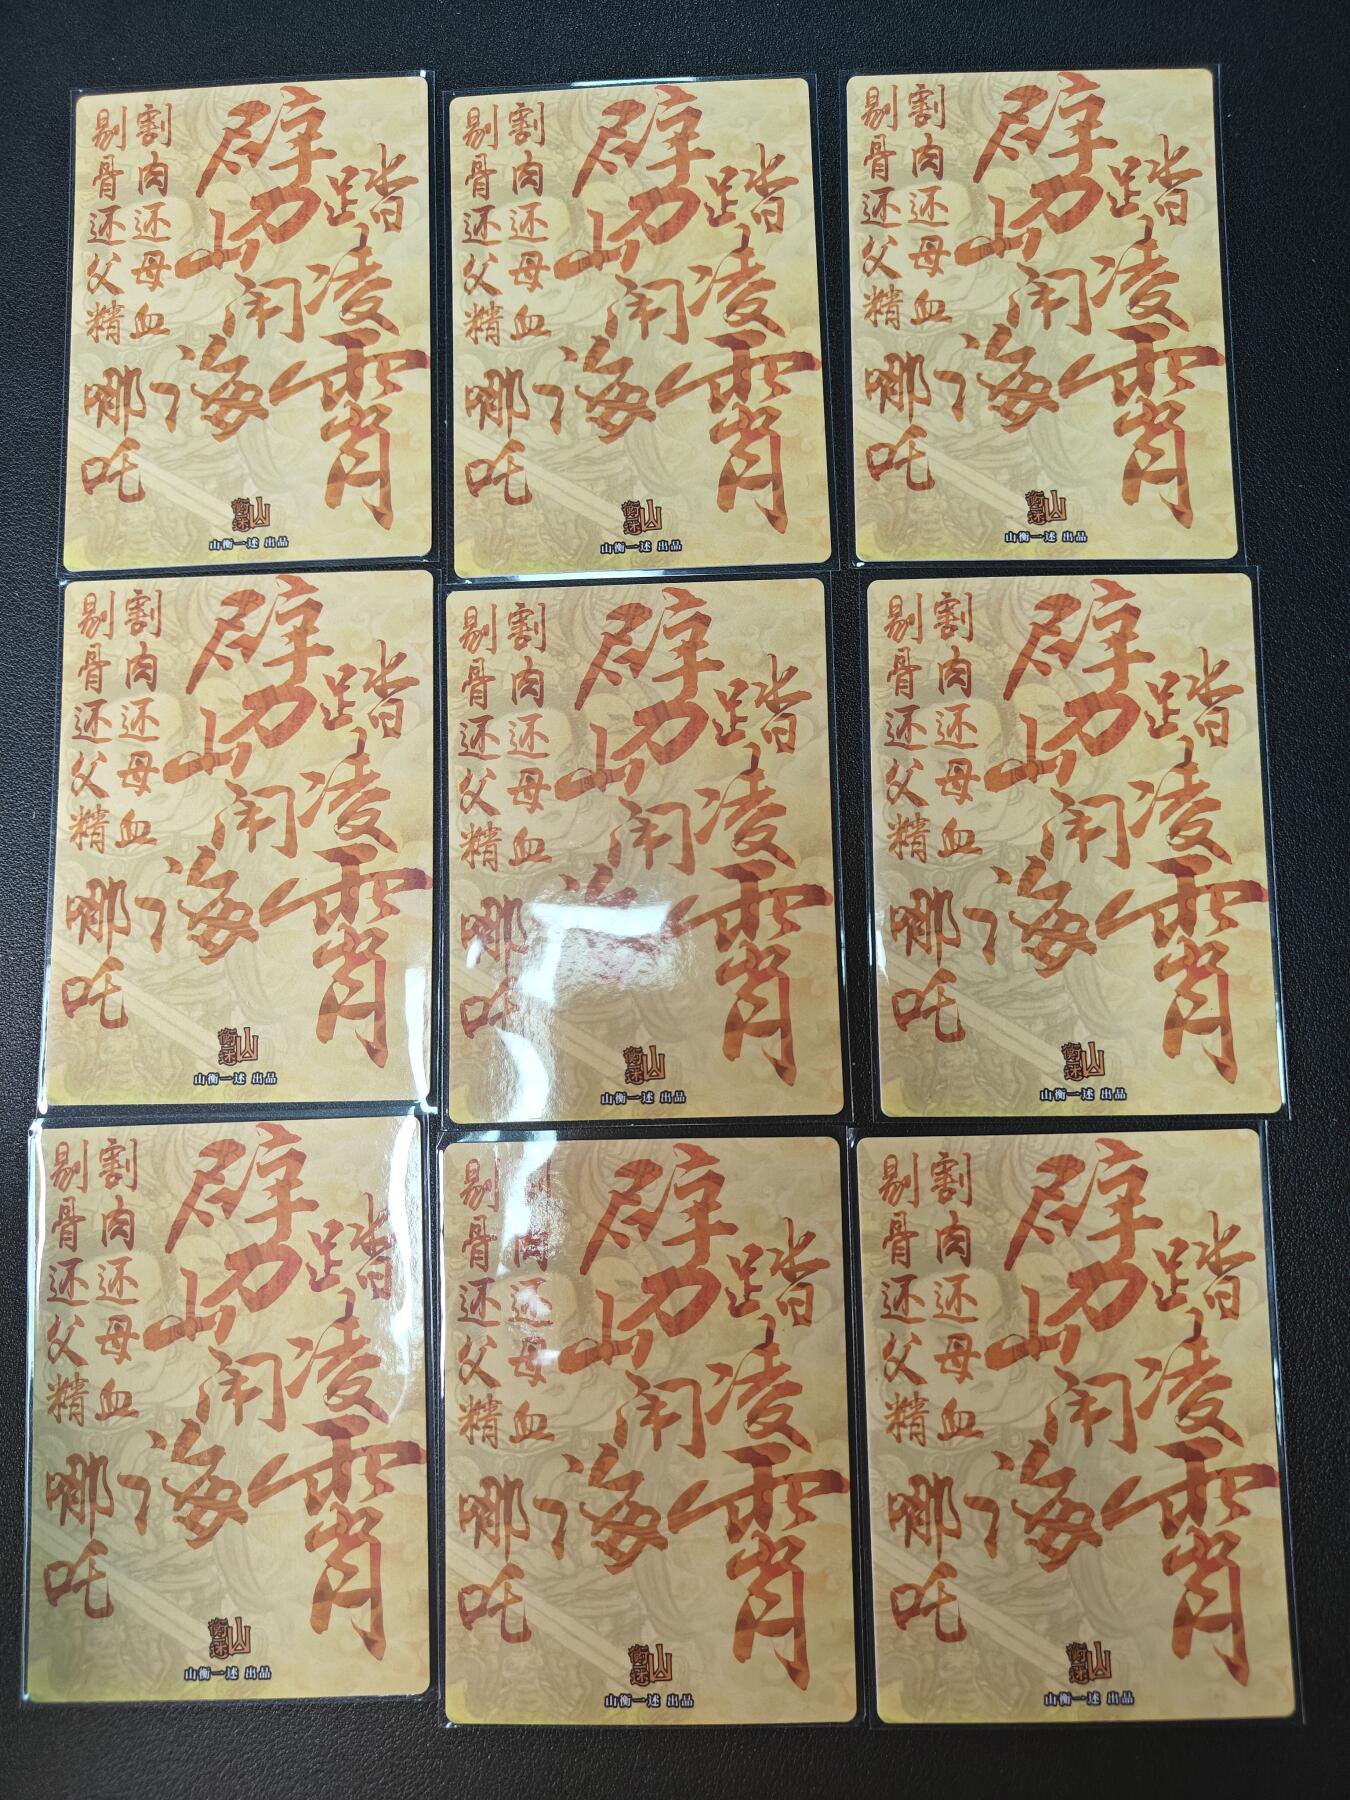 剔骨还父精
割肉还母血
哪吒
劈山闹海
踏凌霄
山衡一述
山衡一述 出品
剔骨还父精
割肉还母血
哪吒
劈山闹海
踏凌霄
山衡一述
山衡一述 出品
剔骨还父精
割肉还母血
哪吒
劈山闹海
踏凌霄
山衡一述
山衡一述 出品
剔骨还父精
割肉还母血
哪吒
劈山闹海
踏凌霄
山衡一述
山衡一述 出品
剔骨还父精
割肉还母血
哪吒
劈山闹海
踏凌霄
山衡一述
山衡一述 出品
剔骨还父精
割肉还母血
哪吒
劈山闹海
踏凌霄
山衡一述
山衡一述 出品
剔骨还父精
割肉还母血
哪吒
劈山闹海
踏凌霄
山衡一述
山衡一述 出品
剔骨还父精
割肉还母血
哪吒
劈山闹海
踏凌霄
山衡一述
山衡一述 出品
剔骨还父精
割肉还母血
哪吒
劈山闹海
踏凌霄
山衡一述
山衡一述 出品